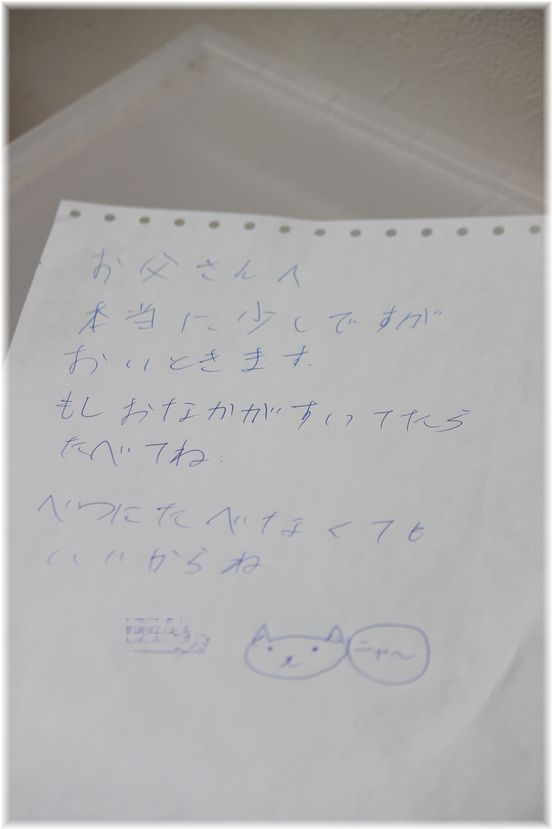 お父さんへ
本当に少しですが
おいときます.
もしおなかがすいてたら
たべてね.
べつにたべなくても
いいからね.
ニャ〜